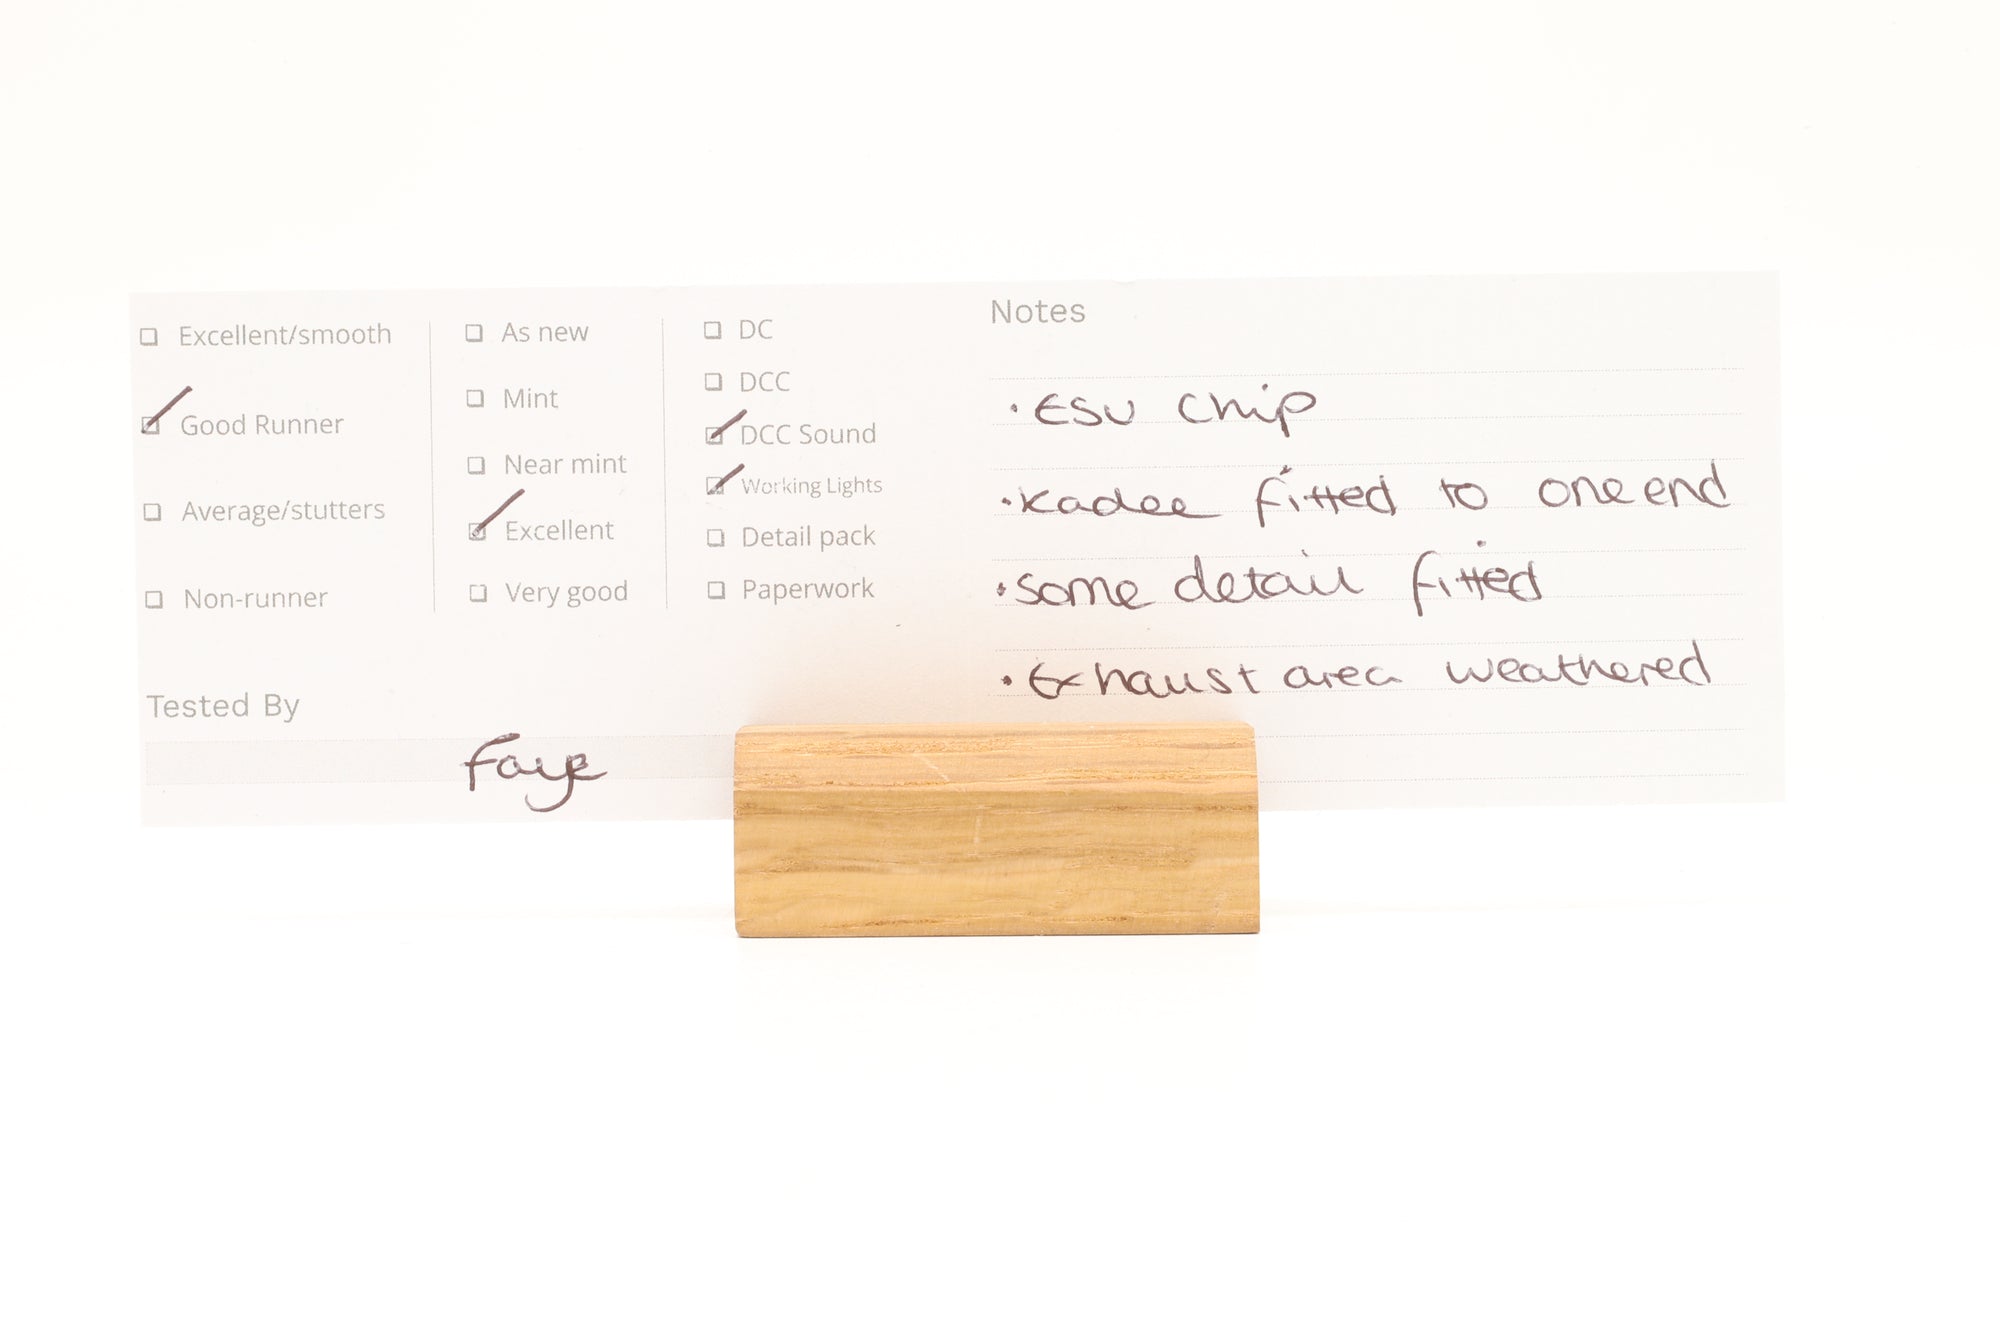 Excellent/smooth
Good Runner
Average/stutters
Non-runner
As new
Mint
Near mint
Excellent
Very good
DC
DCC
DCC Sound
Working Lights
Detail pack
Paperwork
Tested By
Faye
Notes
• ESU Chip
• Kadee fitted to one end
• some detail fitted
• Exhaust area weathered